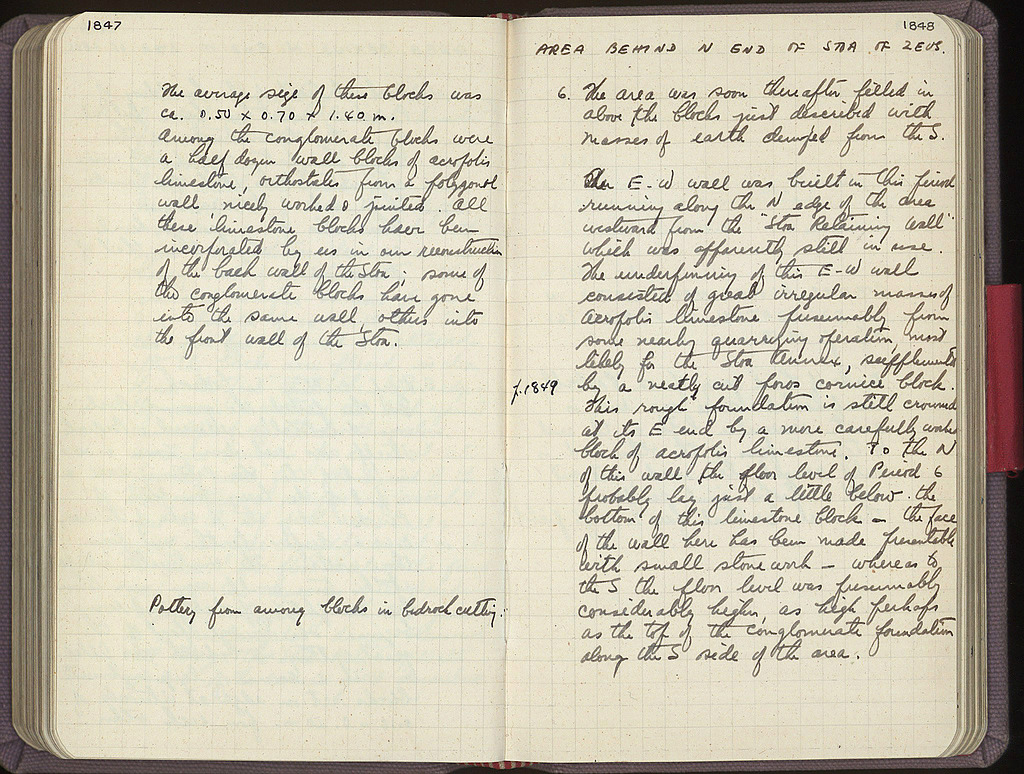 1847
The average size of these blocks was
ca. 0.50 x 0.70 x 1.40 m.
Among the conglomerate blocks were
a half dozen wall blocks of acropolis
limestone, orthostates from a polygonal
wall, nicely worked & jointed. All
these limestone blocks have been
incorporated by us in our reconstruction
of the back wall of the Stoa; some of
the conglomerate blocks have gone
into the same wall, others into
the front wall of the Stoa.
Pottery from among blocks in bedrock cutting:
1848
AREA BEHIND N END OF STOA OF ZEUS.
6. The area was soon thereafter filled in
above the blocks just described with
masses of earth dumped from the S.
An E-W wall was built in this period
running along the N edge of the area
westward from the "Stoa Retaining Wall"
which was apparently still in use.
The underpinning of this E-W wall
consisted of great irregular masses of
acropolis limestone presumably from
some nearby quarrying operation, most
likely for the Stoa Annex, supplemented
p. 1849
by a neatly cut poros cornice block.
This rough foundation is still crowned
at its E end by a more carefully worked
block of acropolis limestone. To the N
of this wall the floor level of Period 6
probably lay just a little below the
bottom of this limestone block – the face
of the wall here has been made presentable
with small stone work – whereas to
the S the floor level was presumably
considerably higher, as high perhaps
as the top of the conglomerate foundation
along the S side of the area.